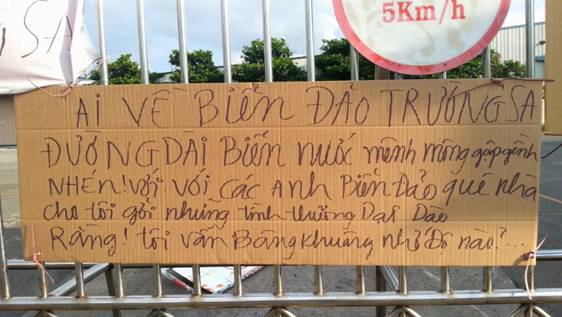 SA
5Km/h
Ai VỀ BIỂN ĐẢO TRƯỜNG SA
ĐƯỜNG DÀI BIỂN NƯỚC mênh mông gập gềnh
NHÉN! với với CÁC ANH BIỂN ĐẢO quê nhà
cho tôi gởi những tình thương DẠT DÀO
RẰNG! tôi vẫn Bâng khuâng nhớ Độ nào?...